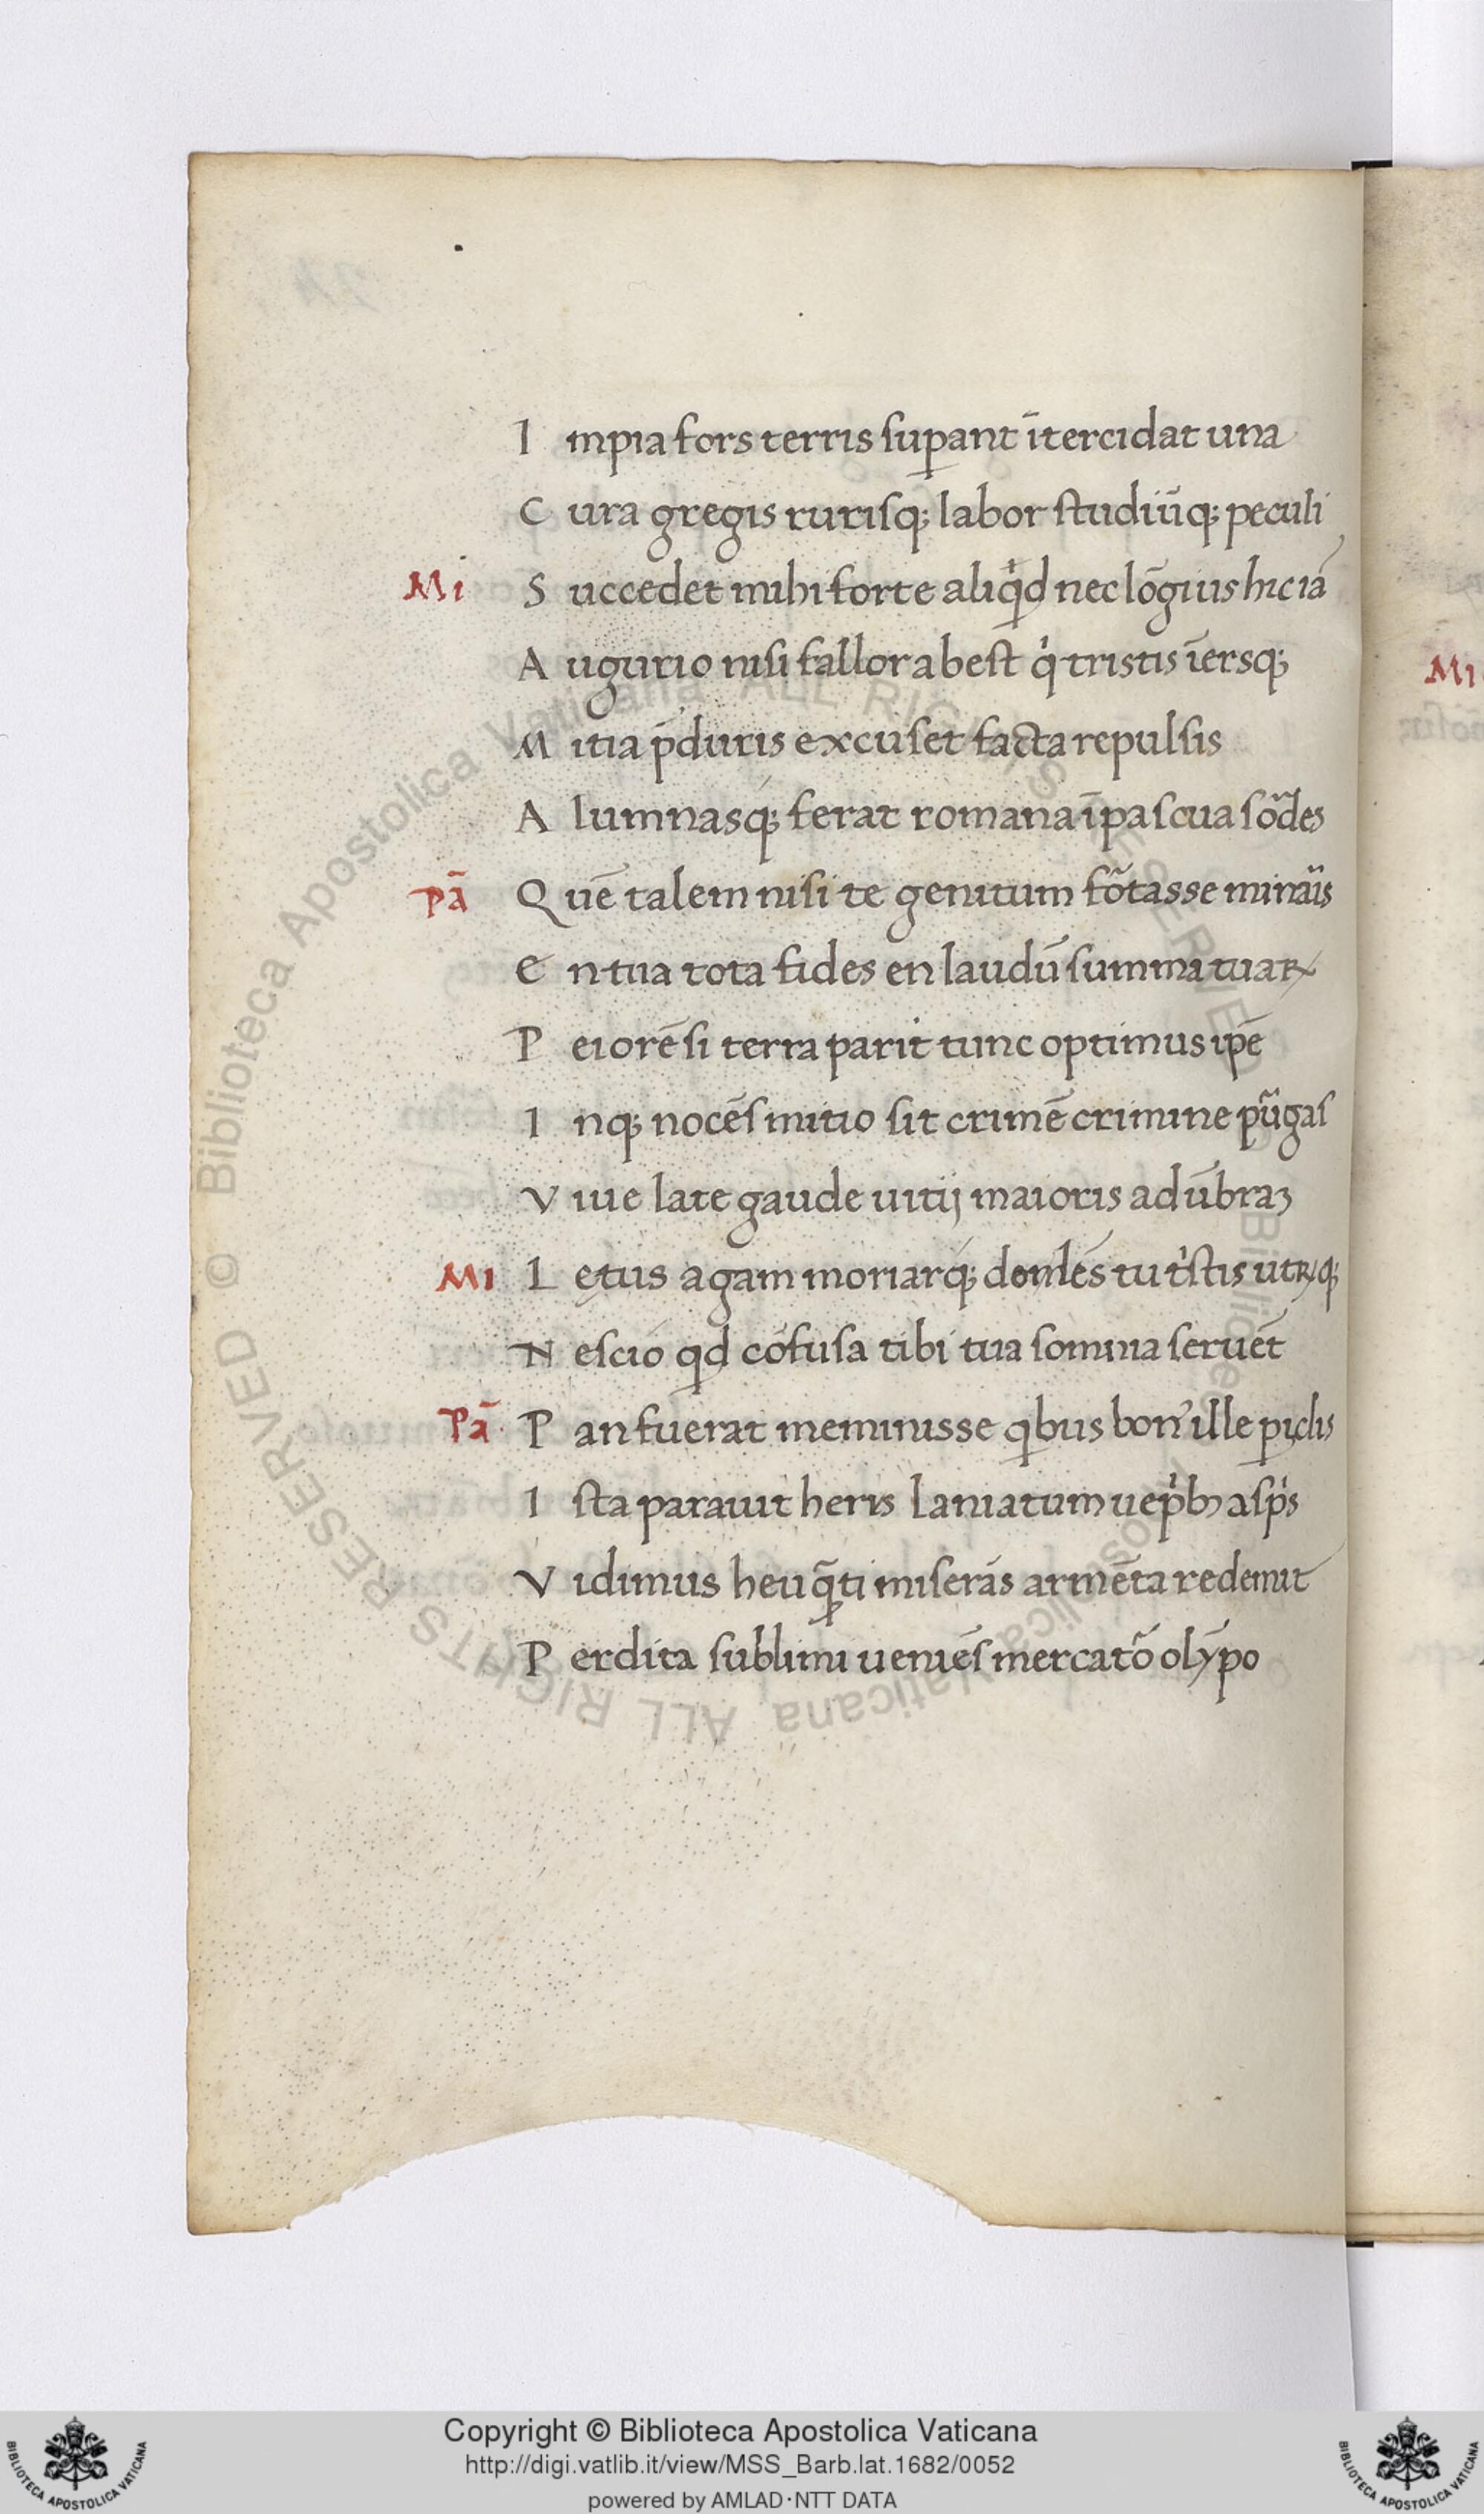 I mpia sors terris suꝑant ītercidat una
C ura gregis rurisq; labor studiūq; peculi
Mi S uccedet mihi forte aliqͥd nec lōgius hic iā
A ugurio nisi fallor abest qͥ tristis īersq;
M itia p̄ duris excuset facta repulsis
A lumnasq; ferat romana ī pascua sōdes
Pā Q uē talem nisi te genitum fōtasse
E n tua tota fides en laudū summa tuaꝝ
P eiorē si terra parit tunc optimus ip̄e
I nq; nocēs initio sit crimē crimine pūgas
V iue late gaude uitij maioris ad ūbraꝫ
MI L etus agam moriarq; tu tͥstis utꝝq;
N escio qd cōfusa tibi tua somnia seruēt
Pā P an fuerat meminisse qbus bonꝰ ille ꝑiclis
I sta parauit heris laniatum uepͥbꝫ aspͥs
V idimus heu q̄ti miserās armēta redemit
P erdita sublimi ueniēs mercatō olȳpo
Mi
Copyright © Biblioteca Apostolica Vaticana
http://digi.vatlib.it/view/MSS_Barb.lat.1682/0052
powered by AMLAD·NTT DATA